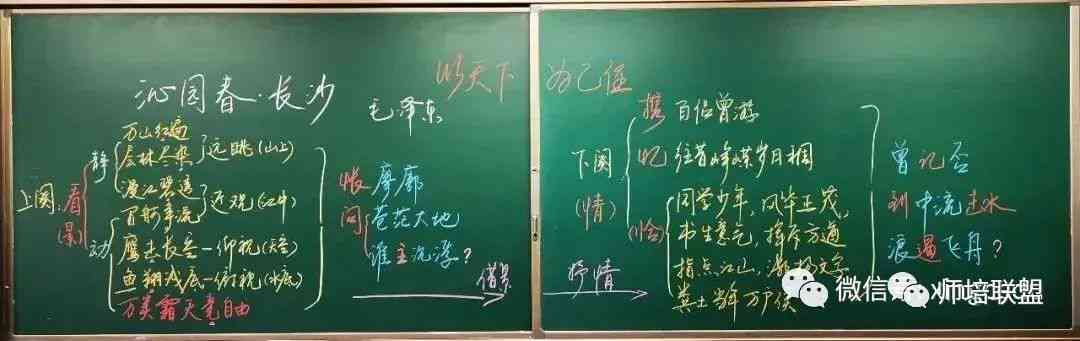 以天下 为己任
沁园春·长沙
毛泽东
上阕:看(景)
静
万山红遍
层林尽染
远眺(山上)
漫江碧透
百舸争流
近观(江中)
动
鹰击长空—仰视(天空)
鱼翔浅底—俯视(水底)
万类霜天竞自由
怅 寥廓
问 苍茫大地
谁主沉浮?
借景
抒情
下阕
(情)
携 百侣曾游
忆 往昔峥嵘岁月稠
(恰)
同学少年,风华正茂,
书生意气,挥斥方遒
指点江山,激扬文字
粪土当年万户侯
曾记否
到中流击水
浪遏飞舟?
微信 师培联盟
师培联盟